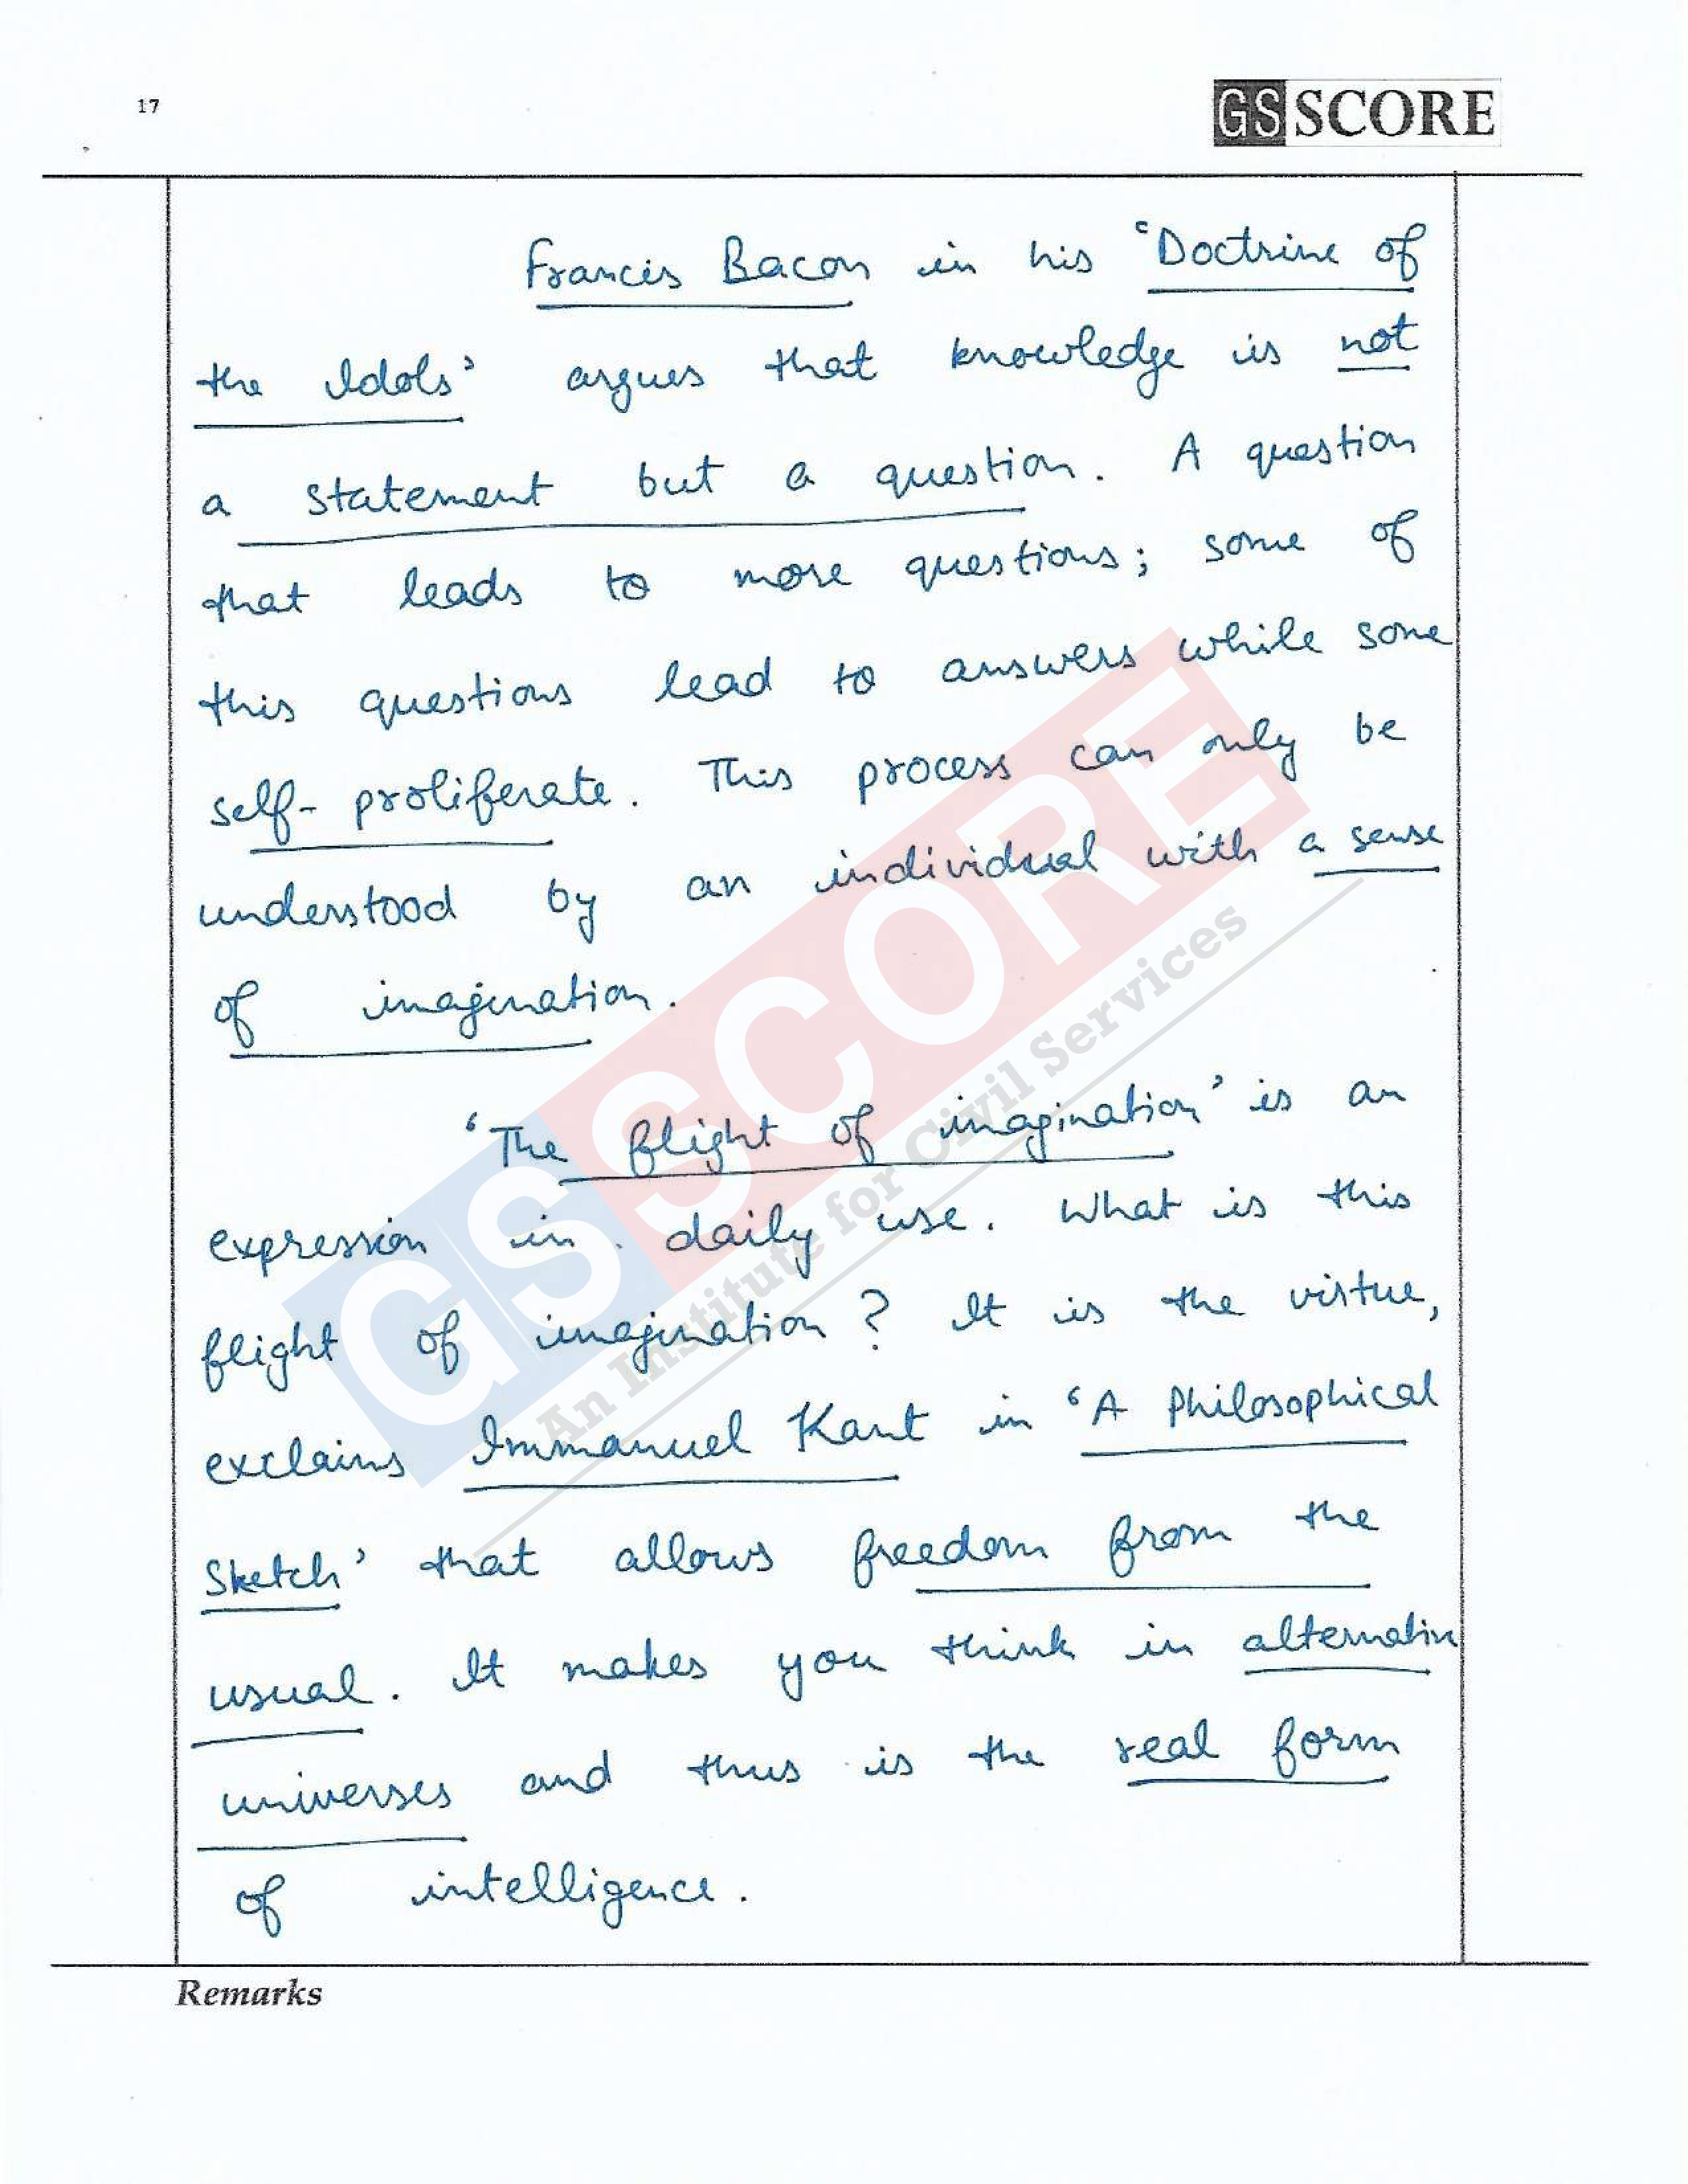 17
GS SCORE
Francis Bacon in his 'Doctrine of
the Idols' argues that knowledge is not
a statement but a question. A question
that leads to more questions; some of
this questions lead to answers while some
self-proliferate. This process can only be
understood by an individual with a sense
of imagination.
'The flight of imagination' is an
expression in daily use. What is this
flight of imagination? It is the virtue,
exclaims Immanuel Kant in 'A Philosophical
Sketch' that allows freedom from the
usual. It makes you think in alternative
universes and thus is the real form
of intelligence.
Remarks
GS SCORE
An Institute for Civil Services